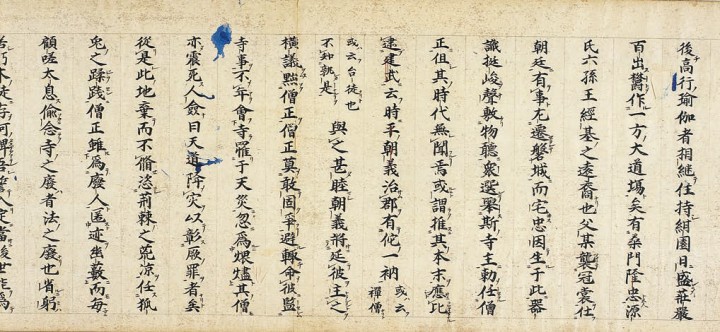 後高行瑜伽者相継住持紺園日盛莊嚴
百出鬱作一方大道場矣有桑門隆忠源
氏六孫王經基之遠裔也父某襲冠裳仕
朝廷有事尢遷磐城而宅忠因生于此器
識挺峻聲敷物聽衆選爲斯寺主勅任僧
正但其時代無聞焉或謂推其本末應比
建武云時平朝義治郡有侘一衲
或云禪僧
或云台徒也不知孰是
與之甚睦朝義將延彼主之
橫議黜僧正僧正莫敢固爭避轉命彼監
寺事不年會寺罹于天災忽爲煨燼其僧
亦震死人僉曰天道降灾以彰厥罪者矣
從是此地棄而不脩恣荊棘之荒凉任狐
兔之蹂踐僧正雖爲廢人匿迹幽藪而每
顧嗟太息倫念寺之廢者法之廢也省躬